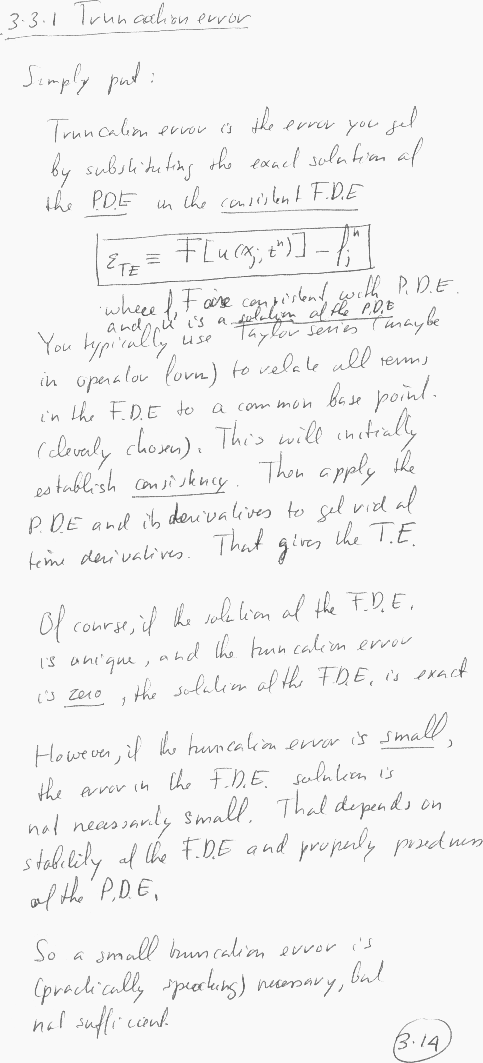 3.3.1 Truncation error
Simply put:
Truncation error is the error you get
by substituting the exact solution of
the P.D.E in the consistent F.D.E
ε_TE ≡ F[u(x_j, t^n)] - f_j^n
where f, F are consistent with P.D.E.
and u is a solution of the P.D.E
You typically use Taylor series (maybe
in operator form) to relate all terms
in the F.D.E to a common base point.
(cleverly chosen). This will initially
establish consistency. Then apply the
P.D.E and its derivatives to get rid of
time derivatives. That gives the T.E.
Of course, if the solution of the F.D.E.
is unique, and the truncation error
is zero, the solution of the F.D.E. is exact
However, if the truncation error is small,
the error in the F.D.E. solution is
not necessarily small. That depends on
stability of the F.D.E and properly posedness
of the P.D.E.
So a small truncation error is
(practically speaking) necessary, but
not sufficient.
3.14